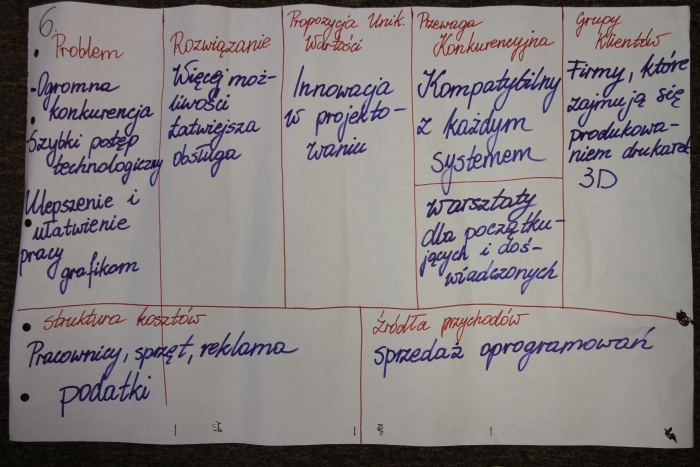 6.
Problem
- Ogromna
konkurencja
Szybki postęp
technologiczny
Ulepszenie i
ułatwienie
pracy
grafikom
Rozwiązanie
Więcej moż-
liwości
Łatwiejsza
obsługa
Propozycja Unik.
Wartości
Innowacja
w projekto-
waniu
Przewaga
Konkurencyjna
Kompatybilny
z każdym
systemem
Warsztaty
dla początku-
jących i doś-
wiadczonych
Grupy
Klientów
Firmy, które
zajmują się
produkowa-
niem drukarek
3D
Struktura kosztów
Pracownicy, sprzęt, reklama
podatki
Źródła przychodów
sprzedaż oprogramowań